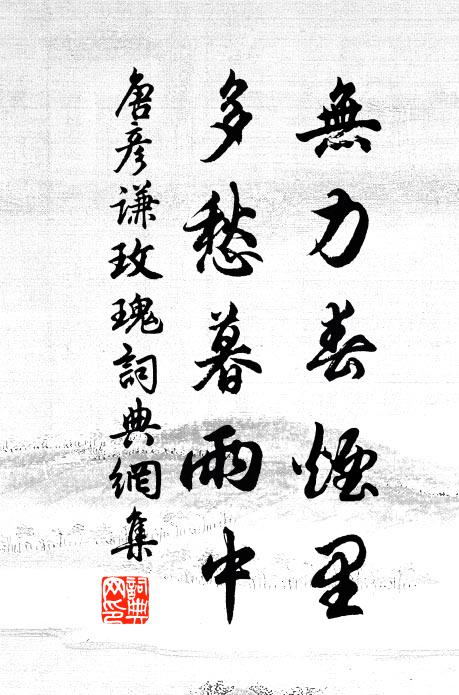 無力春煙里
多愁暮雨中
唐彥謙玫瑰詞典網集
詞典網印